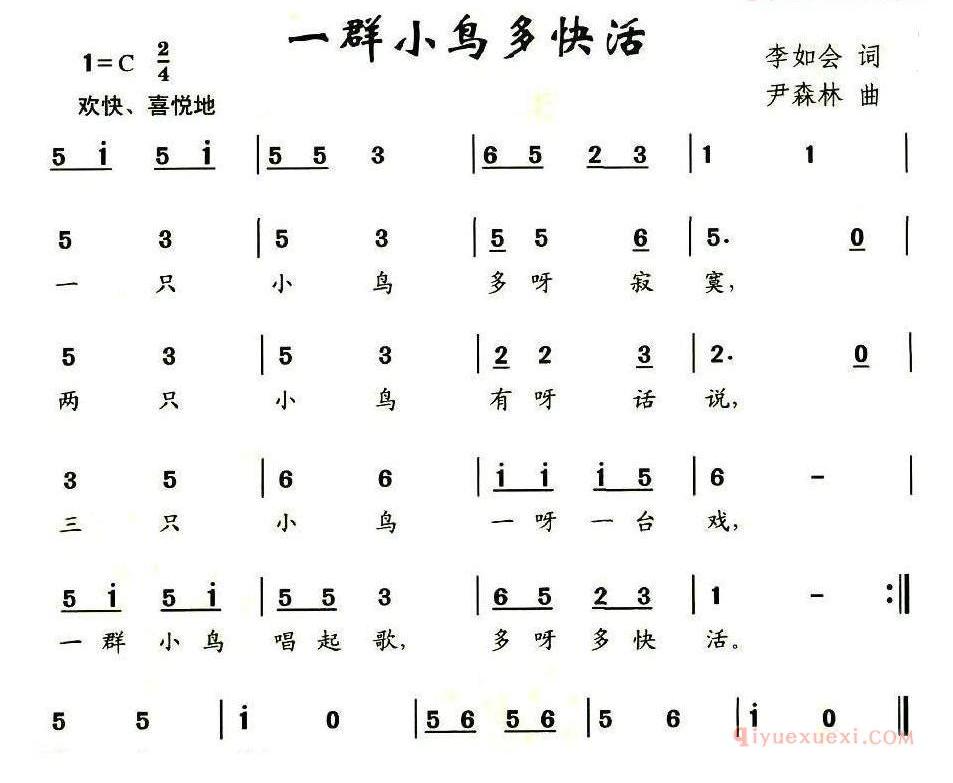 一群小鸟多快活
1=C 2/4
李如会 词
欢快、喜悦地
尹森林 曲
5 i 5 i | 5 5 3 | 6 5 2 3 | 1 1 |
5 3 | 5 3 | 5 5 6 | 5. 0 |
一 只 小 鸟 多 呀 寂 寞,
5 3 | 5 3 | 2 2 3 | 2. 0 |
两 只 小 鸟 有 呀 话 说,
3 5 | 6 6 | i i i 5 | 6 - |
三 只 小 鸟 一 呀 一 台 戏,
5 i 5 i | 5 5 3 | 6 5 2 3 | 1 - :||
一 群 小 鸟 唱 起 歌, 多 呀 多 快 活。
5 5 | i 0 | 5 6 5 6 | 5 6 | i 0 ||
Qiyuexuexi.com